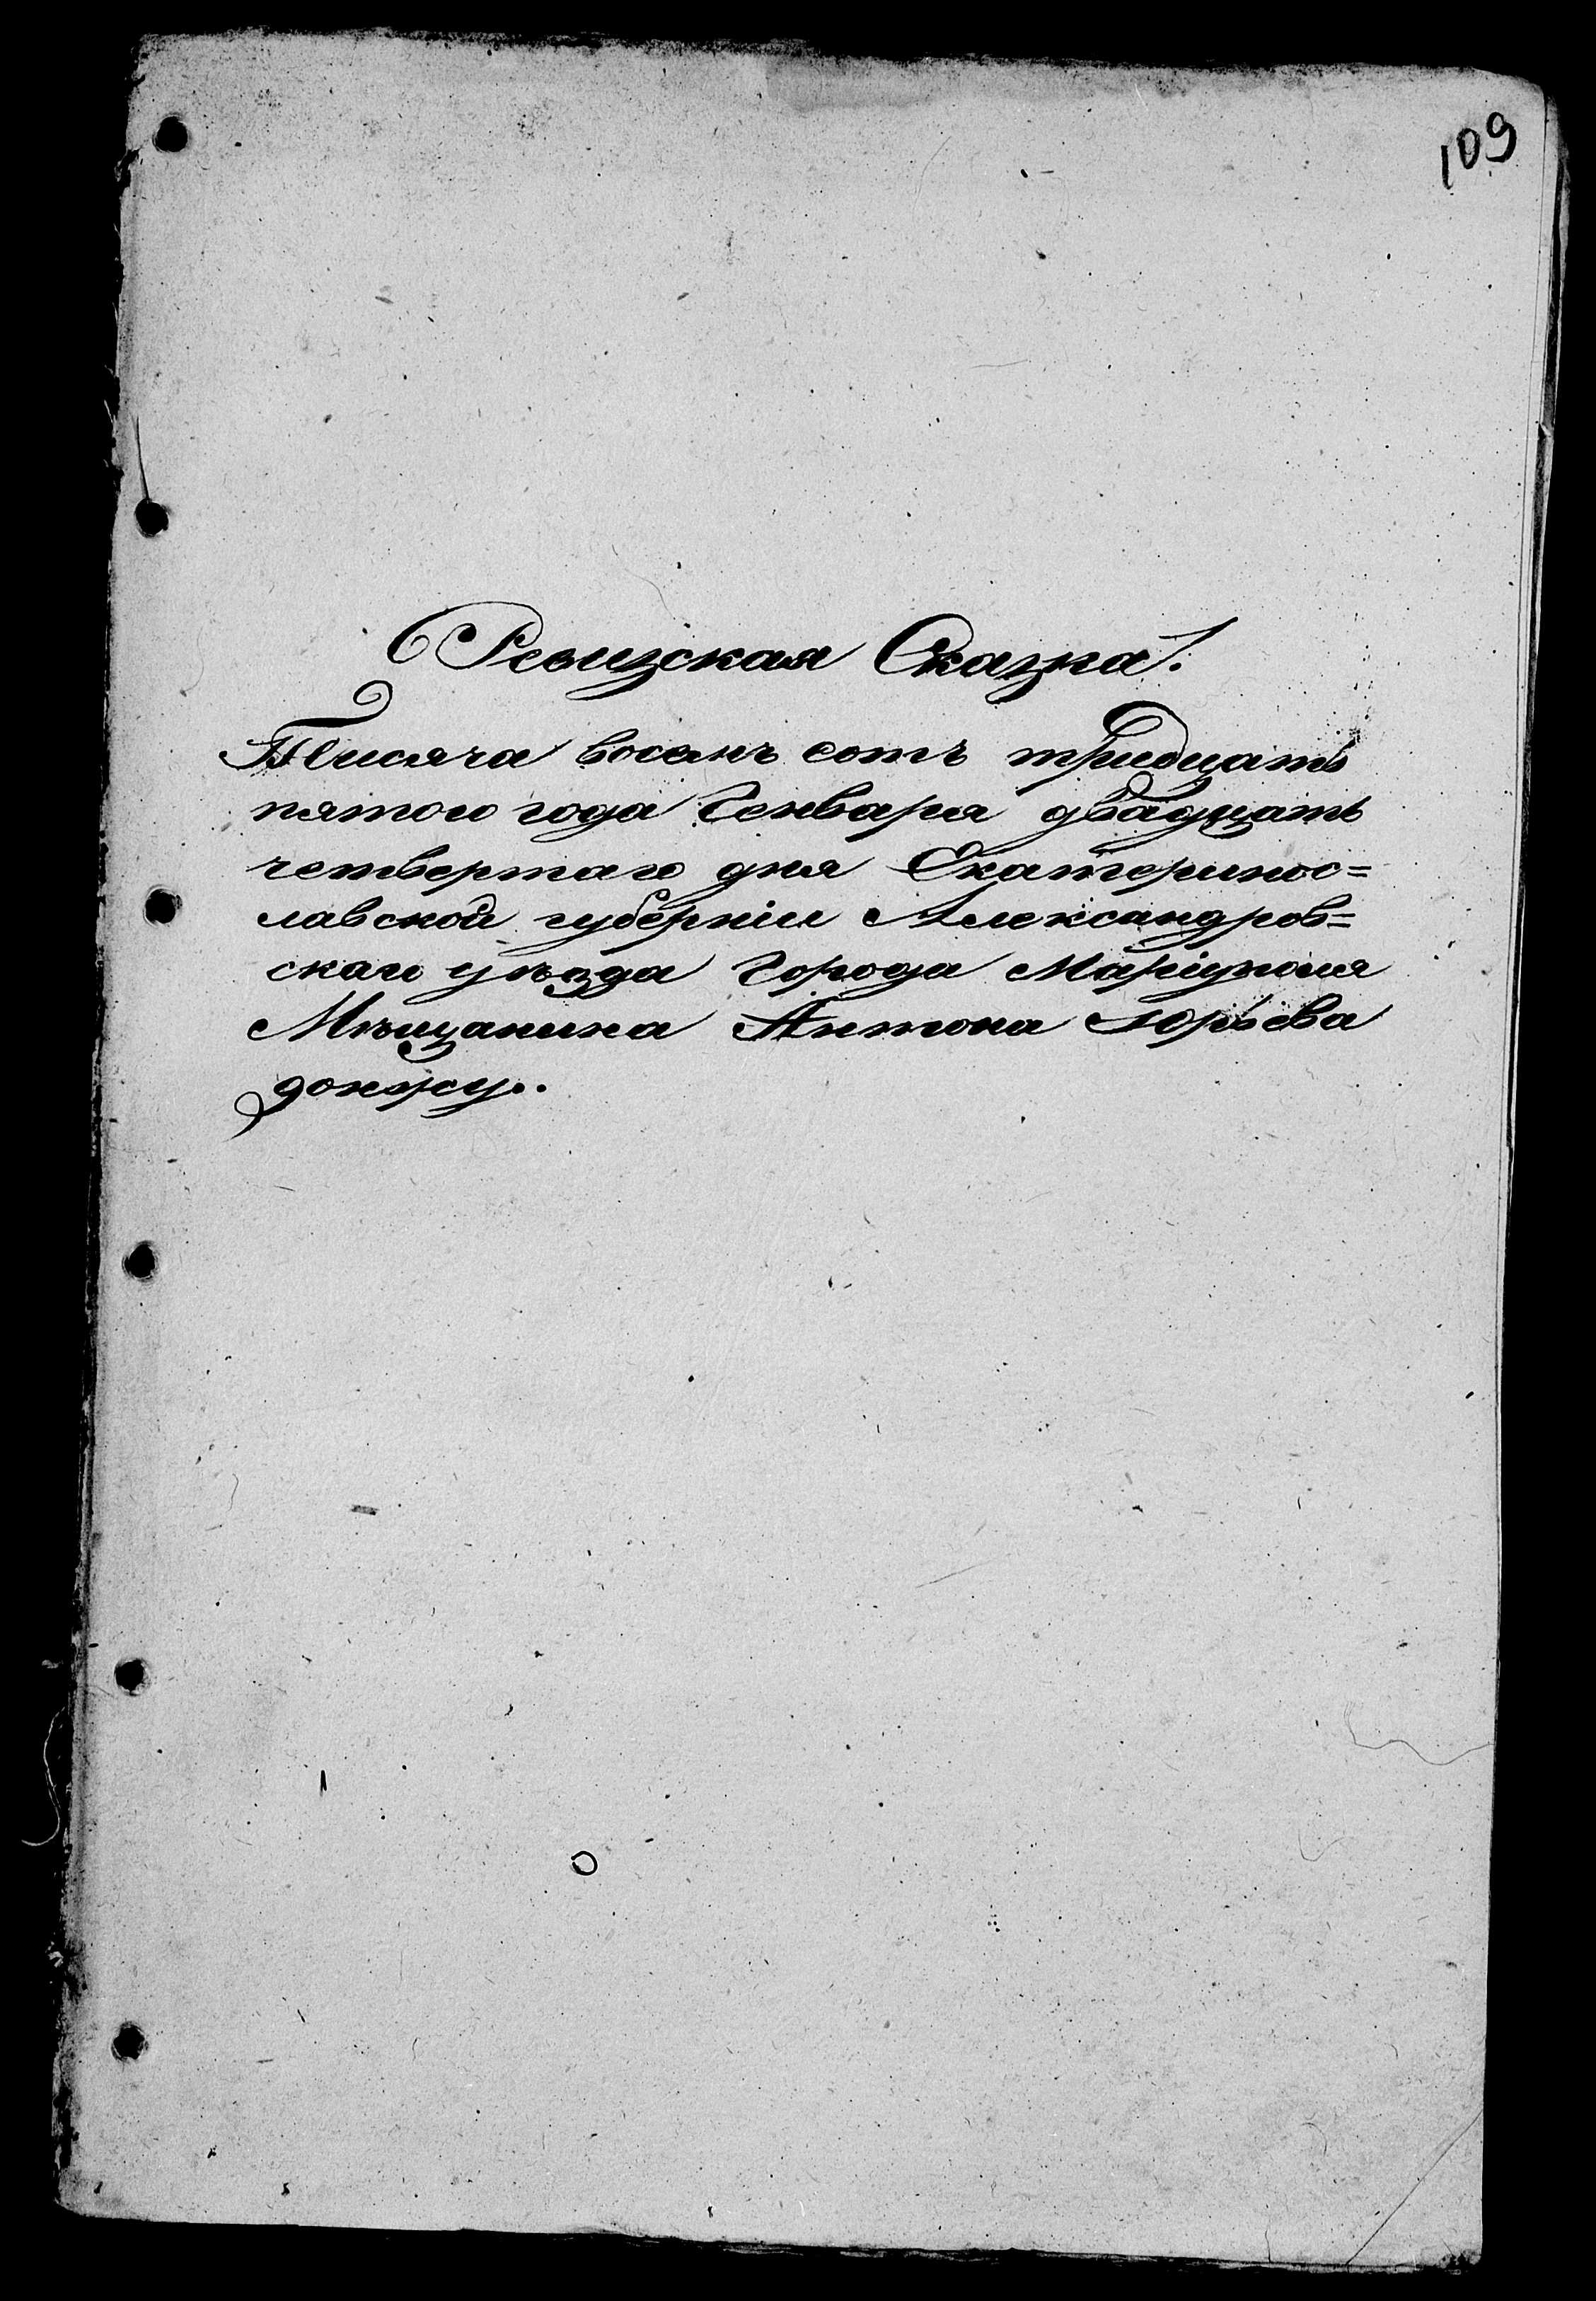 109
Ревизская Сказка.
Тысяча восемь сотъ тридцать
пятого года Генваря двадцать
четвертаго дня Екатеринос=
лавской губерніи Александров=
скаго уѣзда Города Маріуполя
Мѣщанина Антона Юрьева